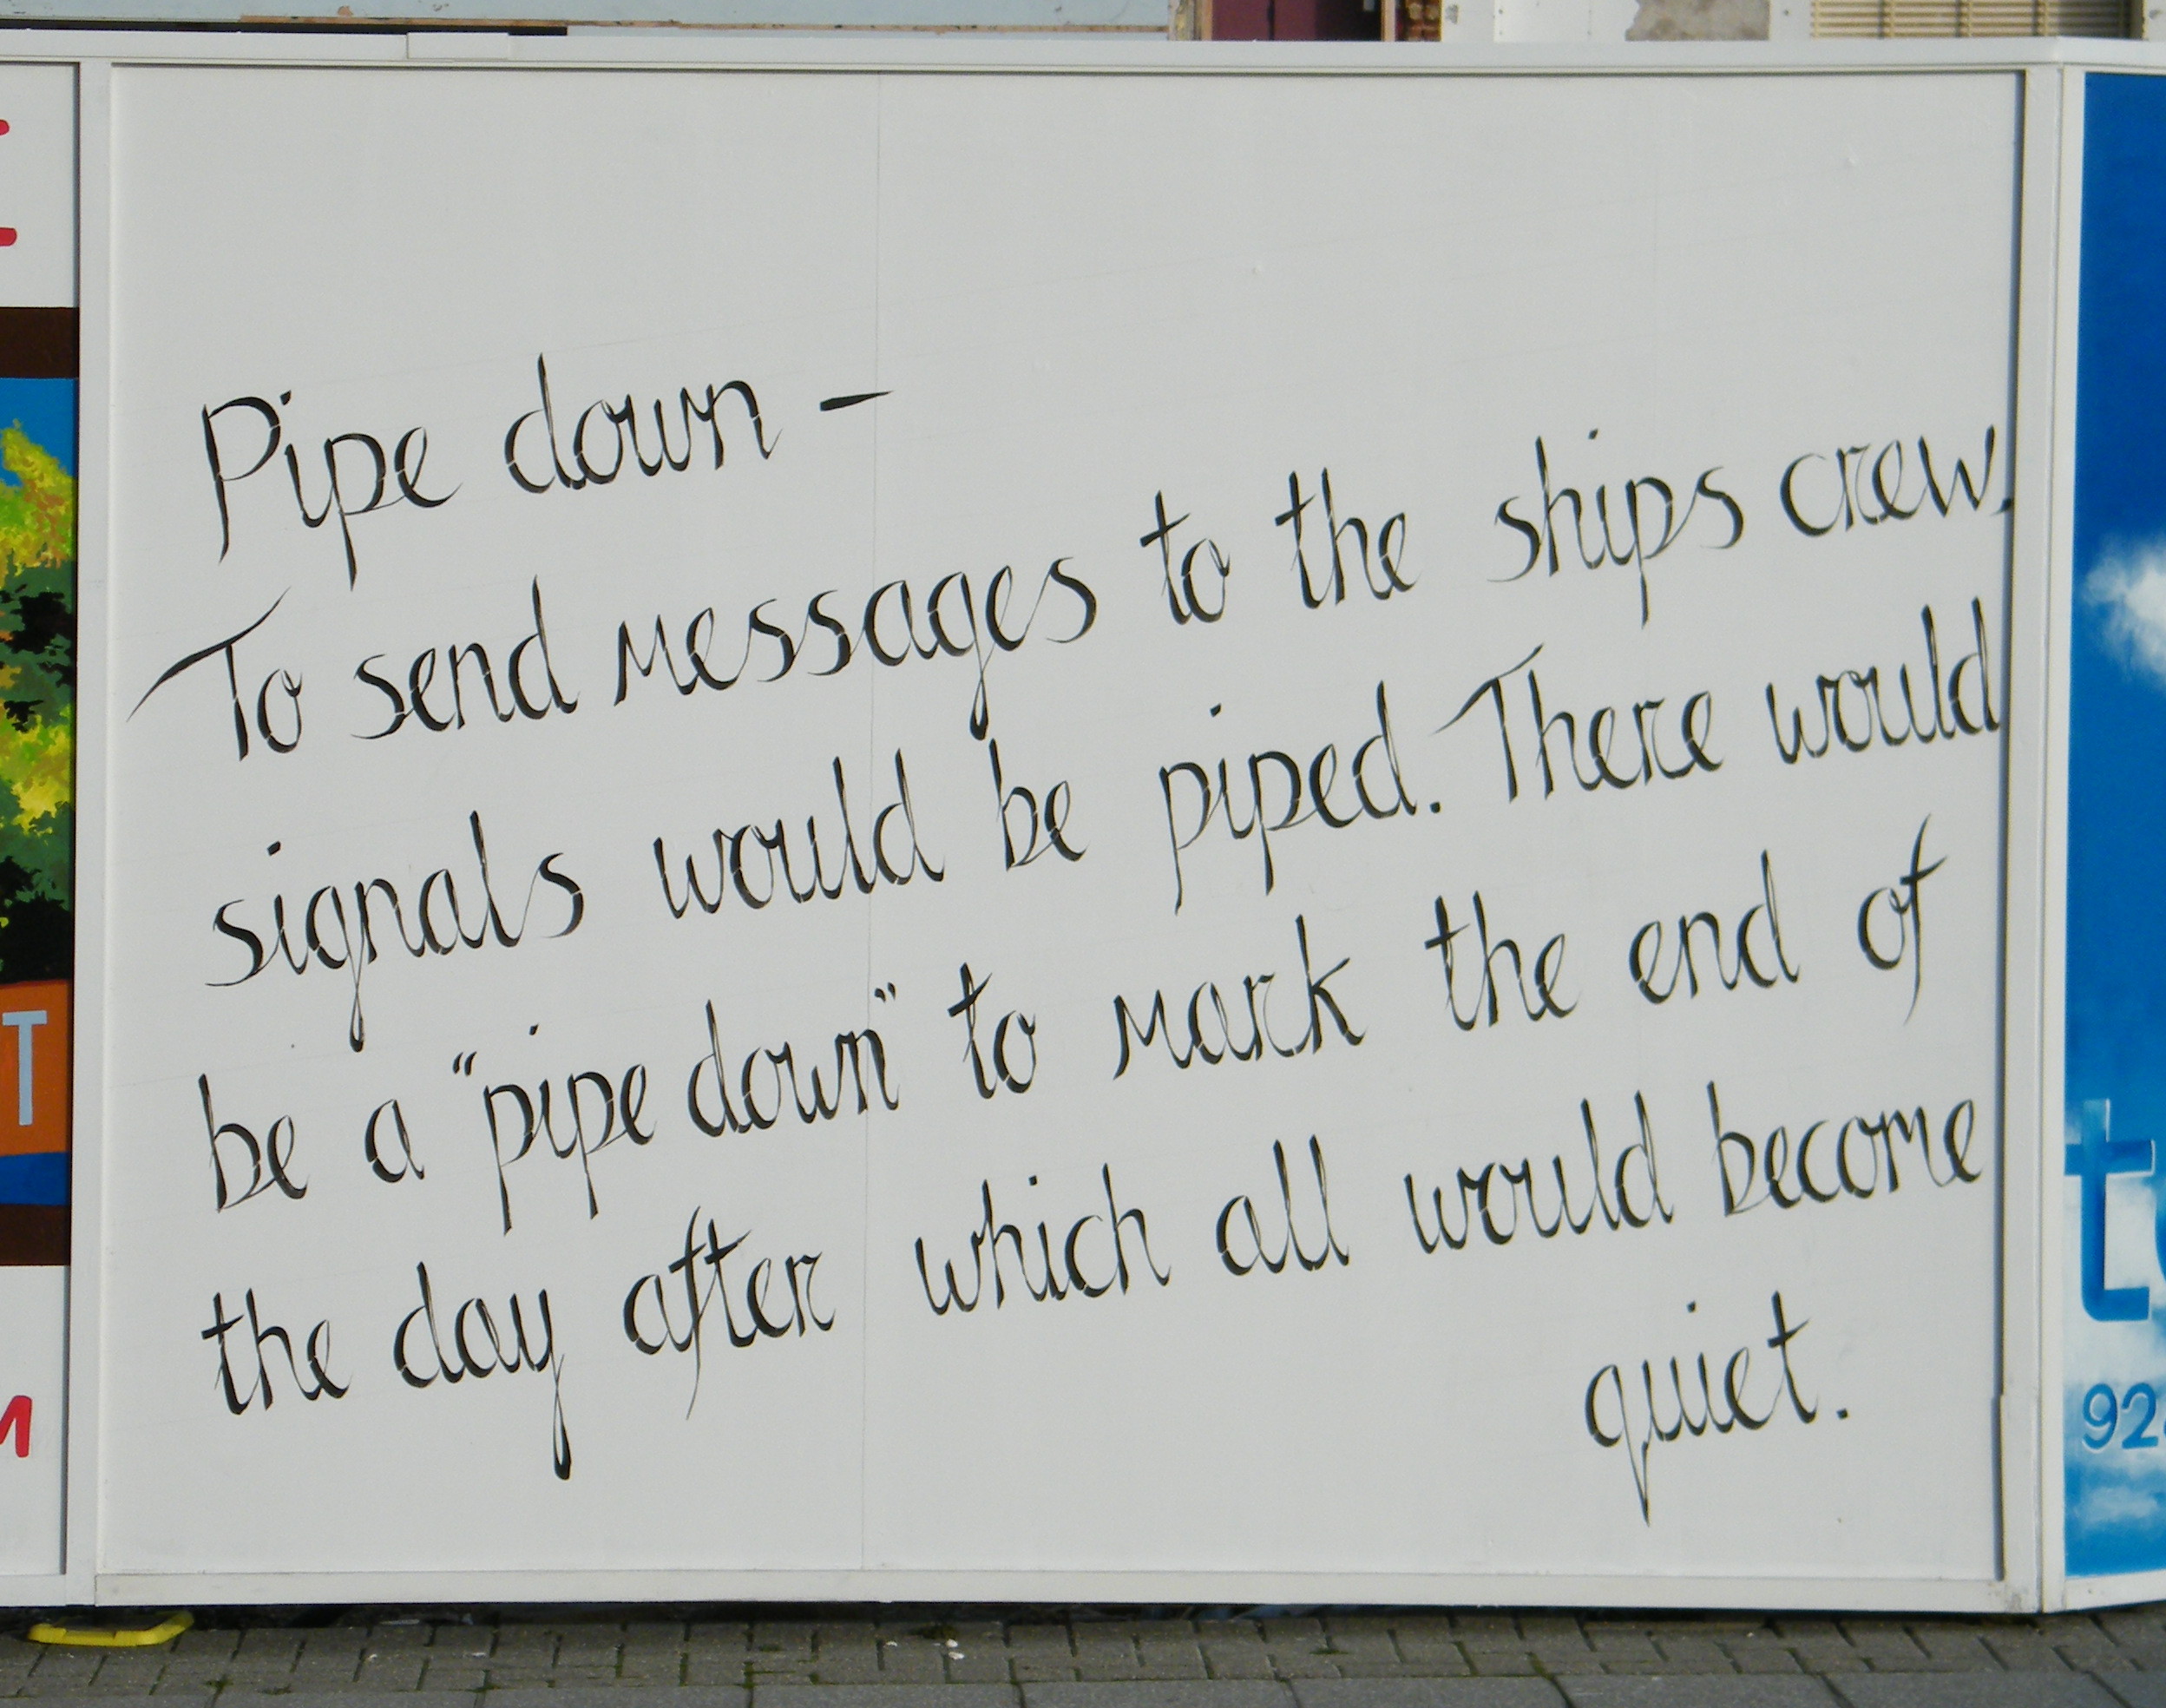 Pipe down –
To send messages to the ships crew,
signals would be piped. There would
be a "pipe down" to mark the end of
the day after which all would become
quiet.
T
M
t
92